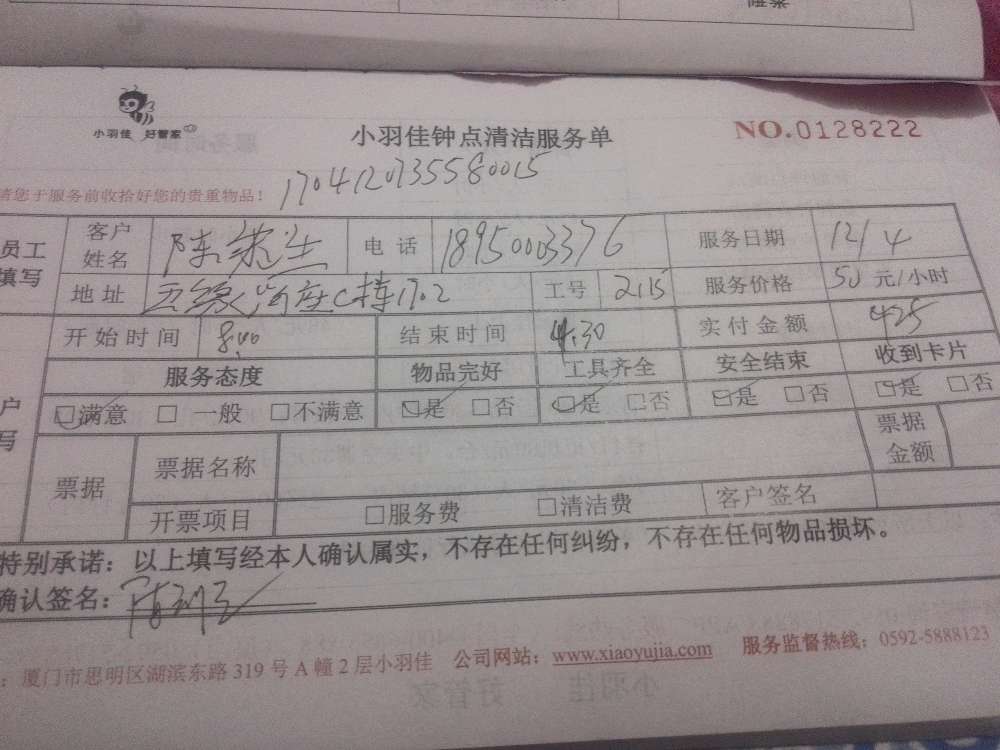 小羽佳 好管家
小羽佳钟点清洁服务单
NO.0128222
请您于服务前收拾好您的贵重物品!
17041207355580015
员工填写 客户姓名 陈 电话 18950003376 服务日期 12/4
地址 五缘湾 C栋1702 工号 2115 服务价格 50 元/小时
开始时间 8:00 结束时间 4:30 实付金额 425
服务态度 物品完好 工具齐全 安全结束 收到卡片
☑满意 □一般 □不满意 ☑是 □否 ☑是 □否 ☑是 □否 ☑是 □否
票据 票据名称 票据金额
开票项目 □服务费 □清洁费 客户签名
特别承诺:以上填写经本人确认属实,不存在任何纠纷,不存在任何物品损坏。
确认签名:
:厦门市思明区湖滨东路 319 号 A 幢 2 层小羽佳 公司网站:www.xiaoyujia.com 服务监督热线:0592-5888123